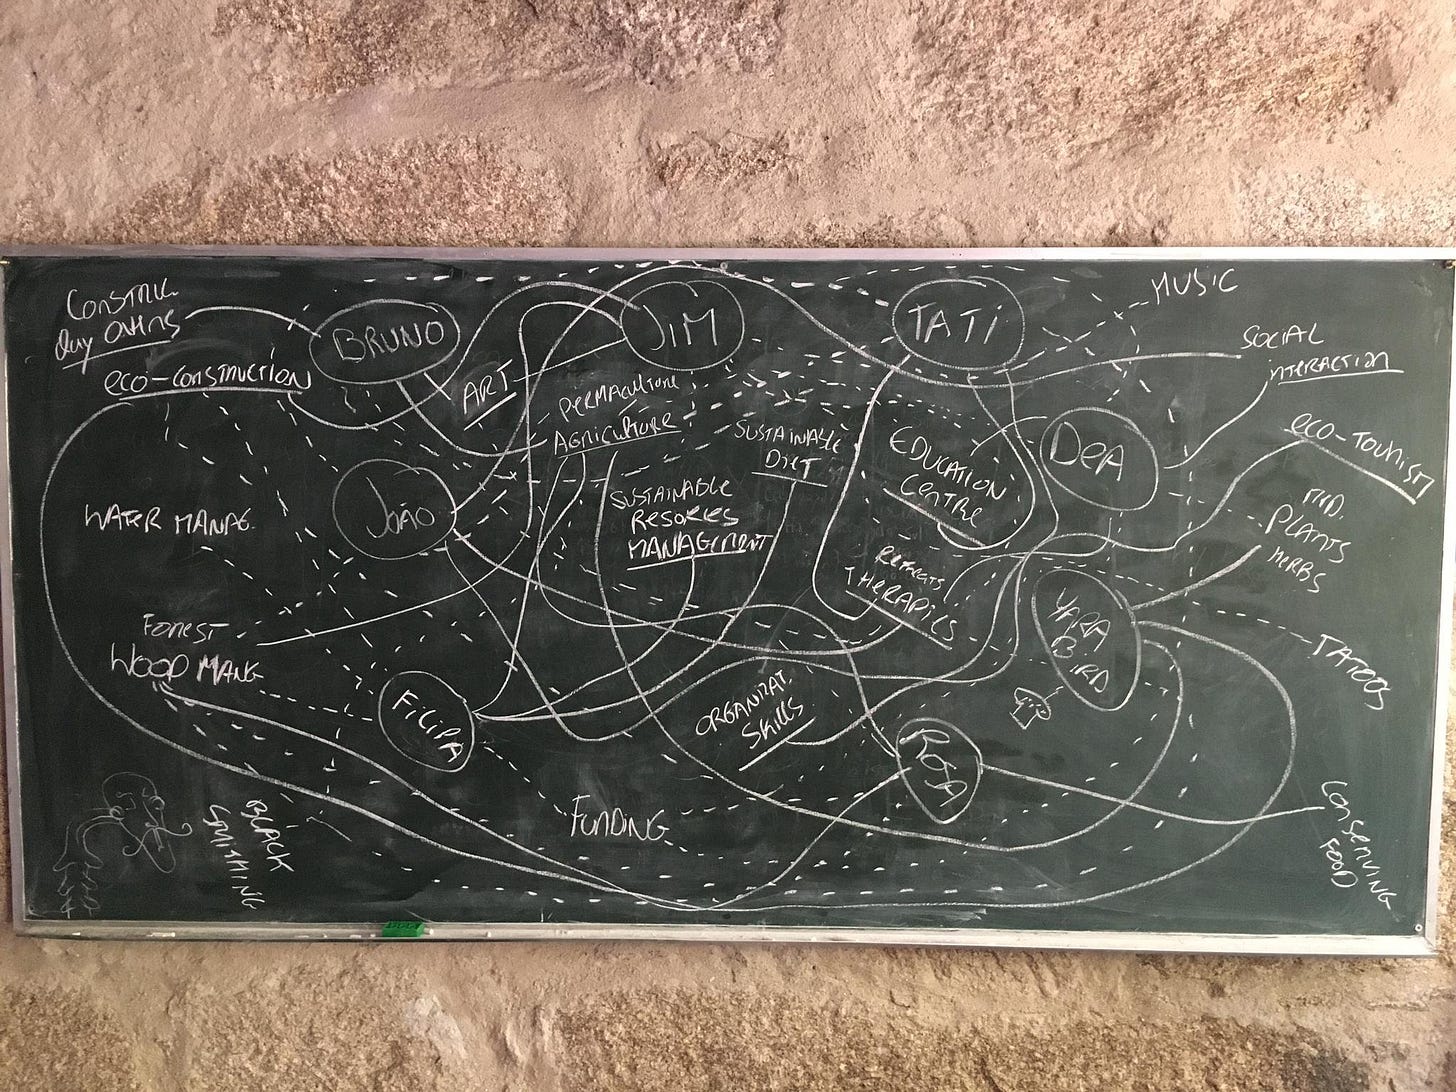 MUSIC
BRUNO
JIM
TATI
SOCIAL
INTERACTION
ECO-CONSTRUCTION
ART
PERMACULTURE
AGRICULTURE
SUSTAINABLE
DIET
EDUCATION
CENTRE
DEA
ECO-TOURIST
JOÃO
SUSTAINABLE
RESORCES
MANAGEMENT
MED.
PLANTS
HERBS
WATER MANAG.
THERAPIES
YARA
BIRD
FOREST
WOOD MANG
TATOOS
FILIPA
ORGANIZAT.
SKILLS
ROSA
FUNDING
BLACK
SMITHING
CONSERVING
FOOD